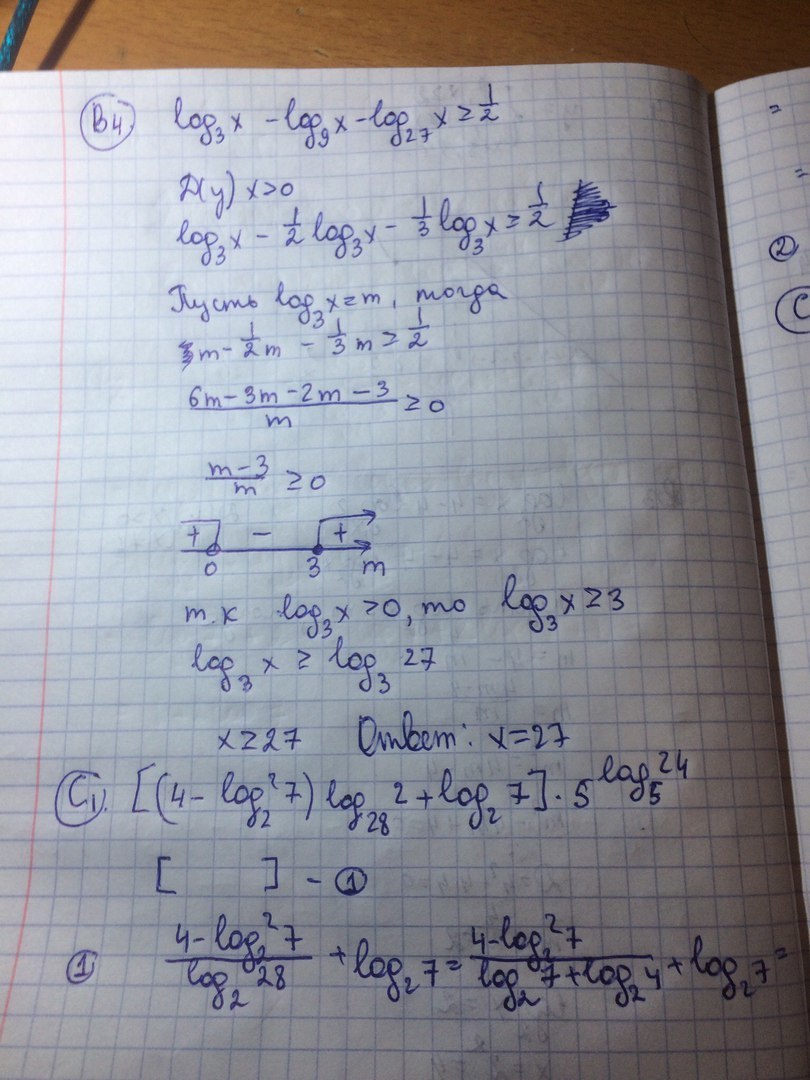 В4 log₃x - log₉x - log₂₇x ≥ 1/2
Д(у) x>0
log₃x - 1/2 log₃x - 1/3 log₃x ≥ 1/2
Пусть log₃x = m, тогда
m - 1/2 m - 1/3 m ≥ 1/2
(6m - 3m - 2m - 3)/m ≥ 0
(m - 3)/m ≥ 0
+ - +
0 3 m
т.к log₃x >0, то log₃x ≥ 3
log₃x ≥ log₃27
x ≥ 27 Ответ: x=27
C₁. [(4 - log₂²7) log₂₈2 + log₂7] · 5^log₅24
[ ] - ①
① (4 - log₂²7)/(log₂28) + log₂7 = (4 - log₂²7)/(log₂7 + log₂4) + log₂7 =
=
=
②
C